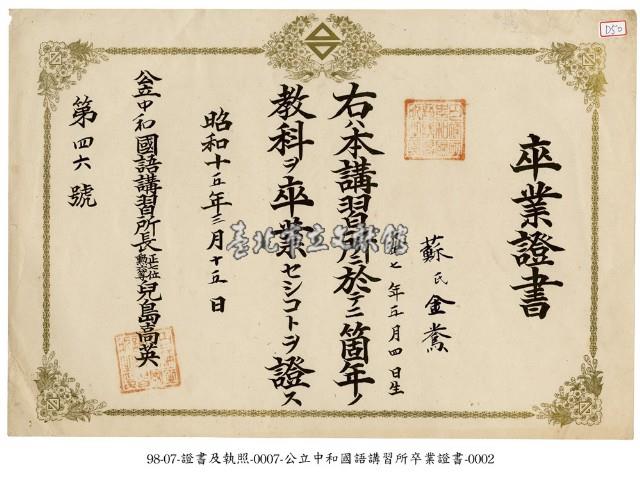 D50
卒業證書
蘇氏金鶯
七年五月四日生
右ハ本講習所ニ於テ二箇年ノ
教科ヲ卒業セシコトヲ證ス
昭和十五年三月十五日
公立中和國語講習所長 正七位 兒島高英
第四六號
臺北市立文獻館
98-07-證書及執照-0007-公立中和國語講習所卒業證書-0002